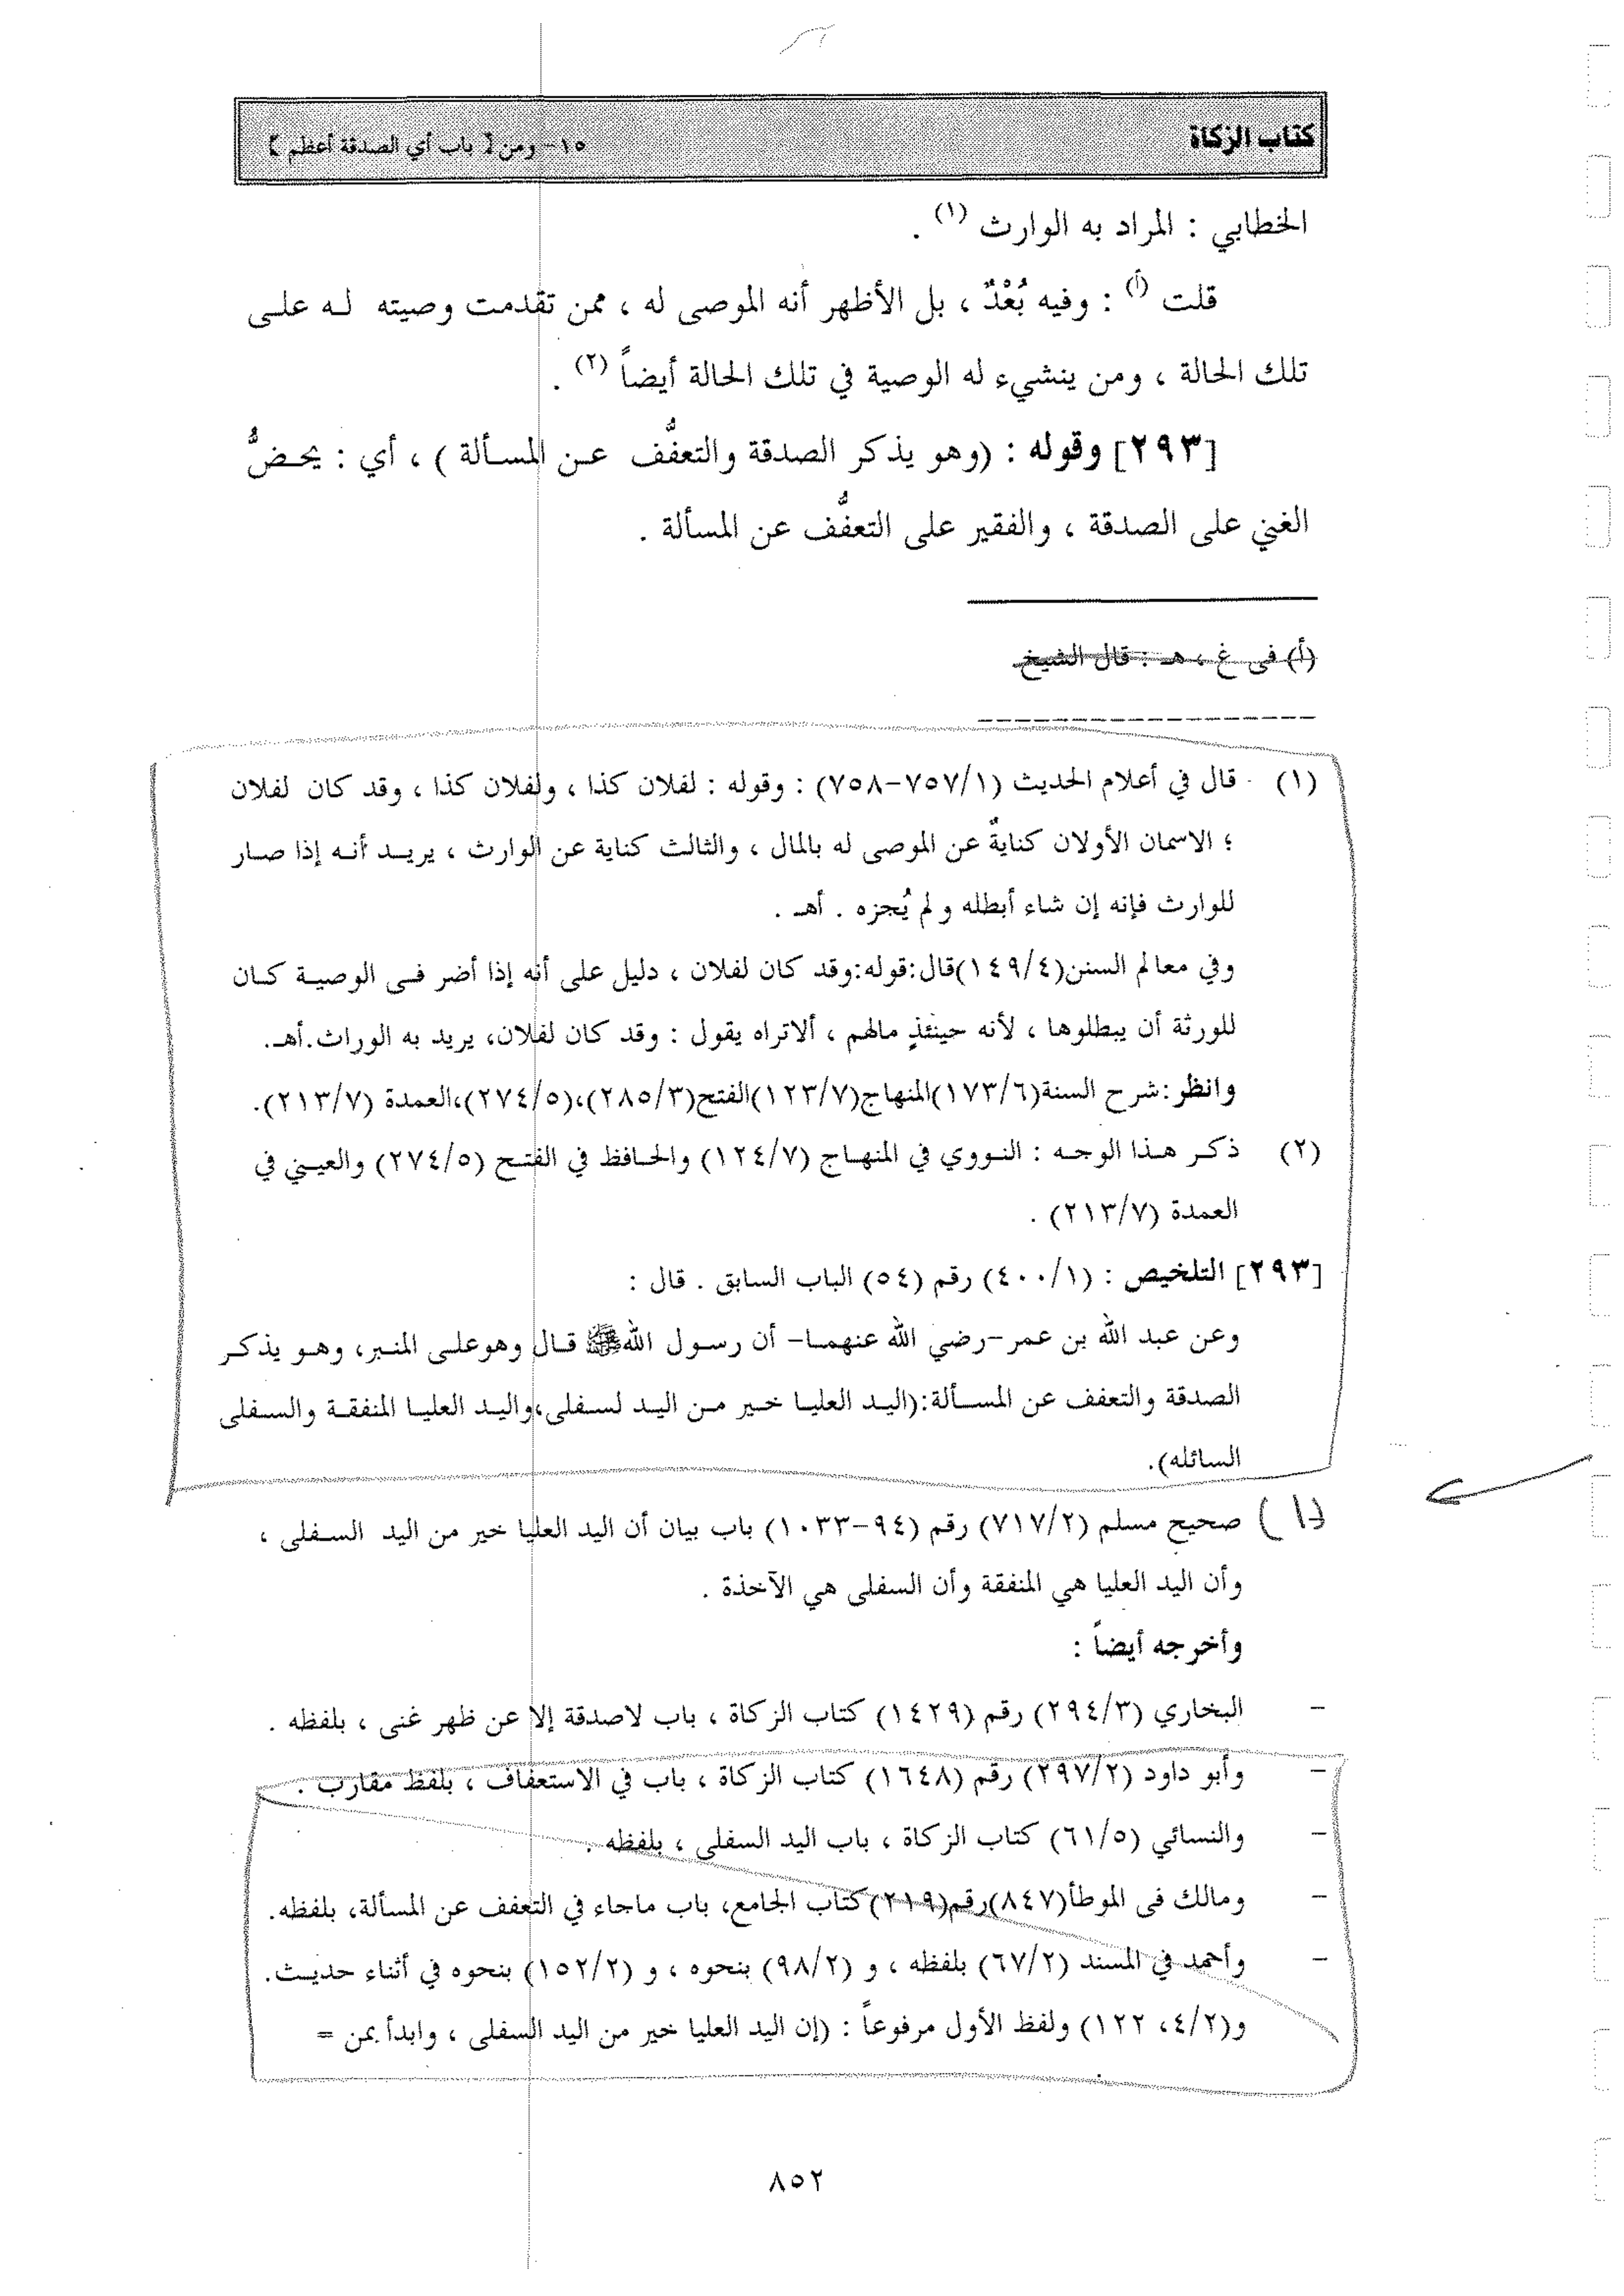 كتاب الزكاة
١٥- ومن [ باب أي الصدقة أعظم ]
الخطابي : المراد به الوارث (١) .
قلت (أ) : وفيه بُعْدٌ ، بل الأظهر أنه الموصى له ، ممن تقدمت وصيته له على
تلك الحالة ، ومن ينشيء له الوصية في تلك الحالة أيضاً (٢) .
[٢٩٣] وقوله : (وهو يذكر الصدقة والتعفُّف عن المسألة ) ، أي : يحضُّ
الغني على الصدقة ، والفقير على التعفُّف عن المسألة .
(أ) فى غ ، هـ : قال الشيخ
(١) قال في أعلام الحديث (٧٥٧/١-٧٥٨) : وقوله : لفلان كذا ، ولفلان كذا ، وقد كان لفلان
؛ الاسمان الأولان كنايةٌ عن الموصى له بالمال ، والثالث كناية عن الوارث ، يريد أنه إذا صار
للوارث فإنه إن شاء أبطله ولم يُجزه . أهـ .
وفي معالم السنن(١٤٩/٤)قال:قوله:وقد كان لفلان ، دليل على أنه إذا أضر فى الوصية كان
للورثة أن يبطلوها ، لأنه حينئذٍ مالهم ، ألاتراه يقول : وقد كان لفلان، يريد به الوراث.أهـ.
وانظر:شرح السنة(١٧٣/٦)المنهاج(١٢٣/٧)الفتح(٢٨٥/٣)،(٢٧٤/٥)،العمدة (٢١٣/٧).
(٢) ذكر هذا الوجه : النووي في المنهاج (١٢٤/٧) والحافظ في الفتح (٢٧٤/٥) والعيني في
العمدة (٢١٣/٧) .
[٢٩٣] التلخيص : (٤٠٠/١) رقم (٥٤) الباب السابق . قال :
وعن عبد الله بن عمر-رضي الله عنهما- أن رسول اللهﷺ قال وهوعلى المنبر، وهو يذكر
الصدقة والتعفف عن المسألة:(اليد العليا خير من اليد لسفلى،واليد العليا المنفقة والسفلى
السائله).
(١) صحيح مسلم (٧١٧/٢) رقم (٩٤-١٠٣٣) باب بيان أن اليد العليا خير من اليد السفلى ،
وأن اليد العليا هي المنفقة وأن السفلى هي الآخذة .
وأخرجه أيضاً :
- البخاري (٢٩٤/٣) رقم (١٤٢٩) كتاب الزكاة ، باب لاصدقة إلا عن ظهر غنى ، بلفظه .
- وأبو داود (٢٩٧/٢) رقم (١٦٤٨) كتاب الزكاة ، باب في الاستعفاف ، بلفظ مقارب .
- والنسائي (٦١/٥) كتاب الزكاة ، باب اليد السفلى ، بلفظه .
- ومالك فى الموطأ(٨٤٧)رقم(٢١٩)كتاب الجامع، باب ماجاء في التعفف عن المسألة، بلفظه.
- وأحمد في المسند (٦٧/٢) بلفظه ، و (٩٨/٢) بنحوه ، و (١٥٢/٢) بنحوه في أثناء حديث.
و(٤/٢، ١٢٢) ولفظ الأول مرفوعاً : (إن اليد العليا خير من اليد السفلى ، وابدأ بمن =
٨٥٢